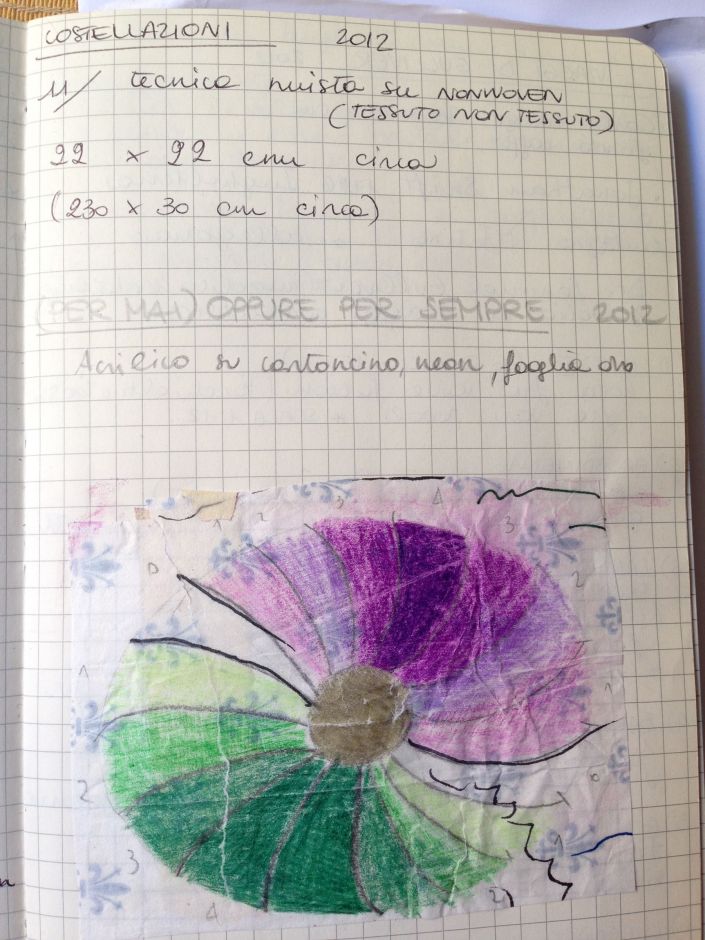 COSTELLAZIONI 2012
11/ tecnica mista su NONWOVEN
(TESSUTO NON TESSUTO)
22 x 22 cm circa
(230 x 30 cm circa)
(PER MAI) OPPURE PER SEMPRE 2012
Acrilico su cartoncino, neon, foglia oro
3 4
1 2 3
0 2
1 1
1
2 0
1
3 2
4